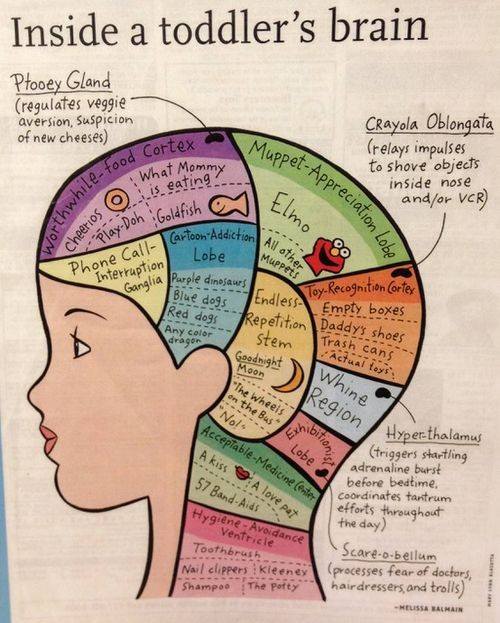 Inside a toddler's brain
Ptooey Gland
(regulates veggie
aversion, suspicion
of new cheeses)
Crayola Oblongata
(relays impulses
to shove objects
inside nose
and/or VCR)
Worthwhile-Food Cortex
What Mommy
is eating
Cheerios
Play-Doh
Goldfish
Muppet-Appreciation Lobe
Elmo
All other
Muppets
Phone Call-
Interruption
Ganglia
Cartoon-Addiction
Lobe
Purple dinosaurs
Blue dogs
Red dogs
Any color
dragon
Endless-
Repetition
Stem
Goodnight
Moon
"The Wheels
on the Bus"
"No!"
Toy-Recognition Cortex
Empty boxes
Daddy's shoes
Trash cans
Actual toys
Whine
Region
Exhibitionist
Lobe
Hyper-thalamus
(triggers startling
adrenaline burst
before bedtime,
coordinates tantrum
efforts throughout
the day)
Acceptable-Medicine Center
A kiss
A love pat
57 Band-Aids
Hygiene-Avoidance
Ventricle
Toothbrush
Nail clippers
Kleenex
Shampoo
The Potty
Scare-o-bellum
(processes fear of doctors,
hairdressers, and trolls)
-MELISSA BALMAIN